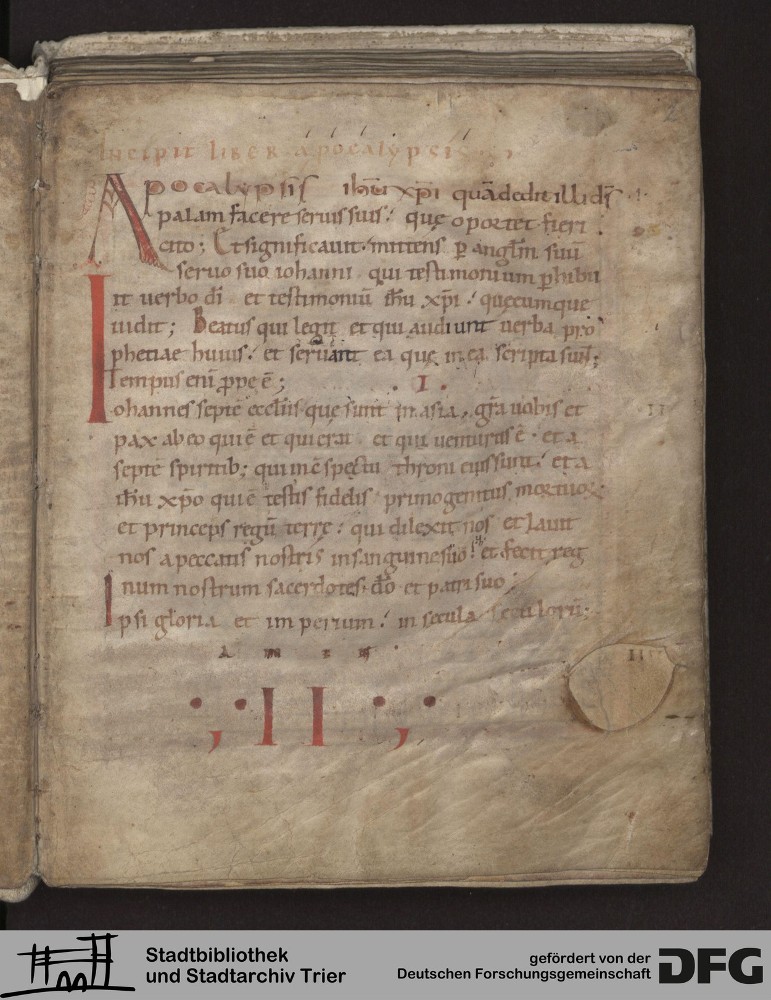 Incipit liber apocalypsis
Apocalypsis ihu xpi quā dedit illi ds
palam facere seruis suis. que oportet fieri
cito; Et significauit. mittens p anglm suū
seruo suo iohanni qui testimonium phibu
it uerbo di et testimoniū ihu xpi. quecumque
uidit; Beatus qui legit et qui audiunt uerba pro
phetiae huius. et seruant ea que in ea scripta sunt;
Tempus eni ppe ē;
. I .
Iohannes septē eccliis que sunt in asia, gra uobis et
pax ab eo qui ē et qui erat et qui uenturus ē. et a
septē spiritib; qui in cspectu throni eius sunt. et a
ihu xpo qui ē testis fidelis primogenitus mortuor
et princeps regū terre. qui dilexit nos et lauit
nos a peccatis nostris in sanguine suo. et fecit reg
num nostrum sacerdotes. do et patri suo;
Ipsi gloria et imperium. in secula seculorū;
a m e n
II
II
III
Stadtbibliothek
und Stadtarchiv Trier
gefördert von der
Deutschen Forschungsgemeinschaft
DFG